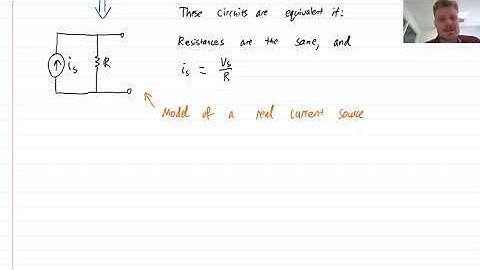 These circuits are equivalent if:
Resistances are the same, and
i_s = V_s / R
i_s
R
Model of a real current source